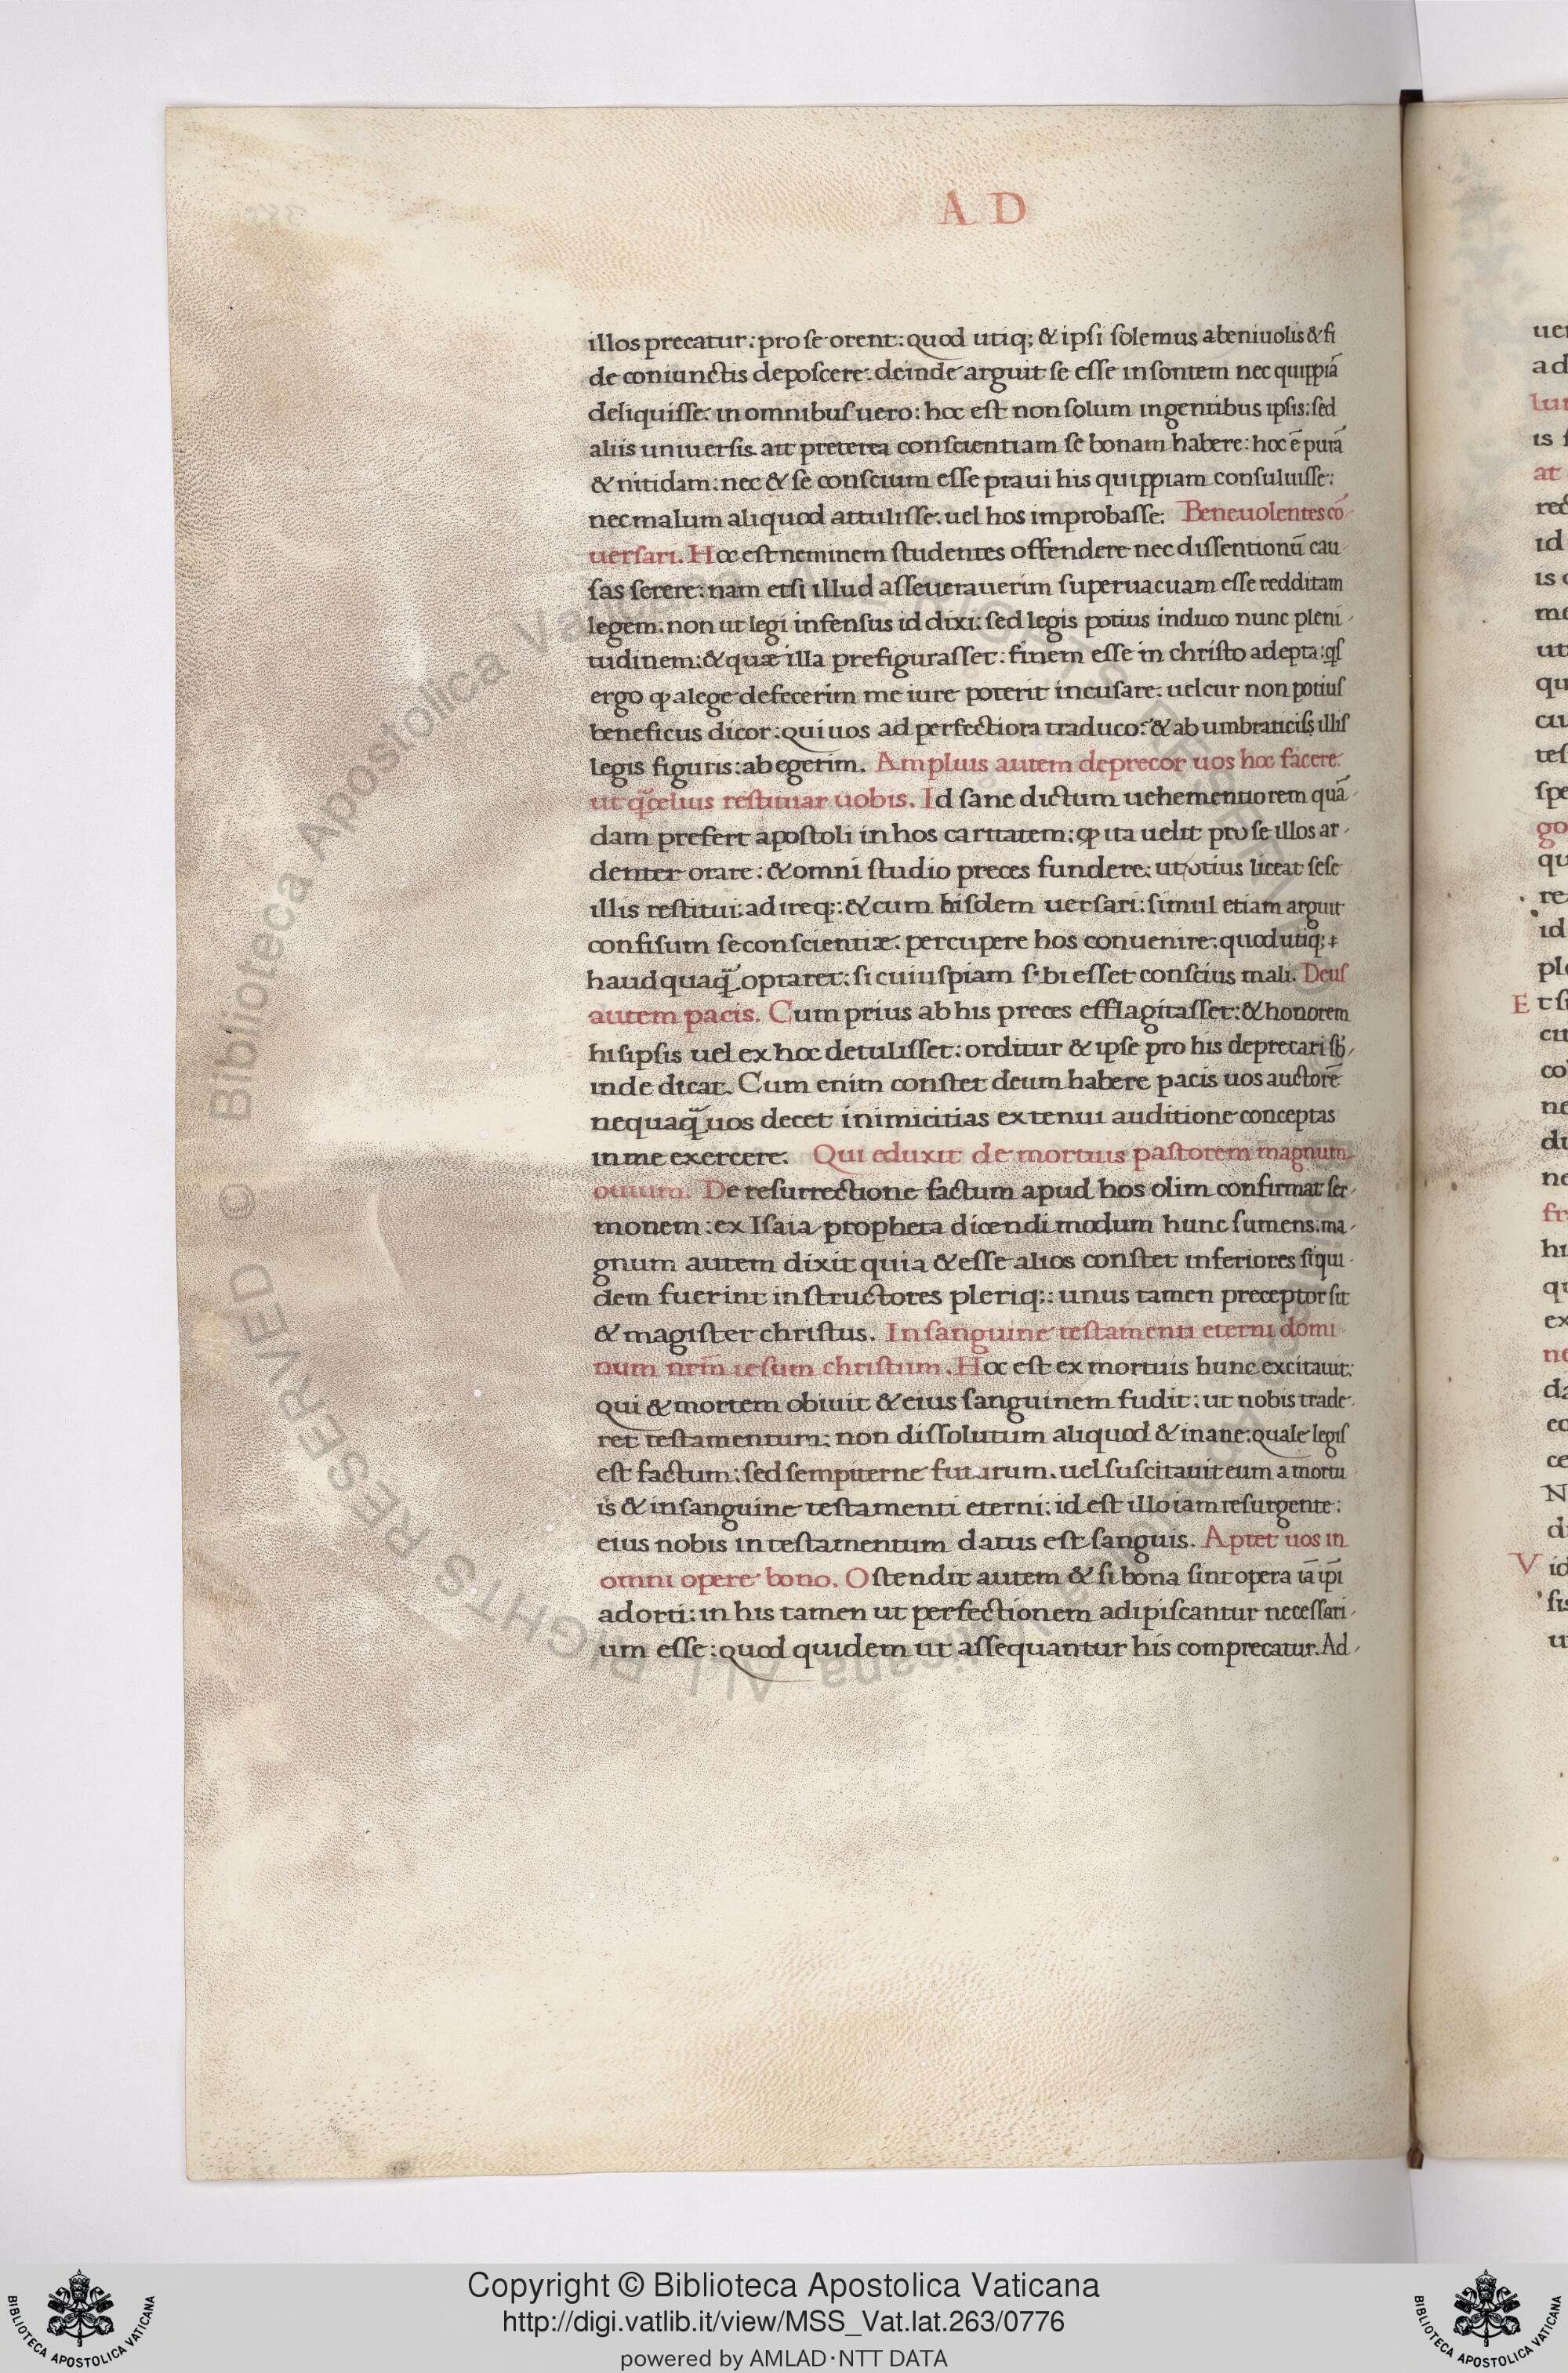 A D
illos precatur: pro se orent: quod utiq; & ipsi solemus a beniuolis & fi
de coniunctis deposcere. deinde arguit se esse insontem nec quippiã
deliquisse. in omnibus uero: hoc est non solum in gentibus ipsis: sed
aliis uniuersis. ait preterea conscientiam se bonam habere: hoc ẽ purã
& nitidam: nec & se conscium esse praui his quippiam consuluisse:
nec malum aliquod attulisse. uel hos improbasse. Beneuolentes cõ
uersari. Hoc est neminem studentes offendere nec dissentionũ cau
sas serere: nam etsi illud asseuerauerim superuacuam esse redditam
legem. non ut legi infensus id dixi: sed legis potius induco nunc pleni
tudinem: & quæ illa prefigurasset: finem esse in christo adepta:
ergo ꝙ a lege defecerim me iure poterit incusare. uel cur non potius
beneficus dicor: qui uos ad perfectiora traduco: & ab umbraticis illis
legis figuris: abegerim. Amplius autem deprecor uos hoc facere.
ut restituar uobis. Id sane dictum uehementiorem quã
dam prefert apostoli in hos caritatem: ꝙ ita uelit pro se illos ar
denter orare: & omni studio preces fundere: ut otius liceat sese
illis restitui: adireq;: & cum hisdem uersari: simul etiam arguit
confisum se conscientiæ. percupere hos conuenire: quod utiq;
haudquaq̃ optaret: si cuiuspiam sibi esset conscius mali. Deus
autem pacis. Cum prius ab his preces efflagitasset: & honorem
hisipsis uel ex hoc detulisset: orditur & ipse pro his deprecari sb
inde dicat. Cum enim constet deum habere pacis uos auctorẽ
nequaq̃ uos decet inimicitias ex tenui auditione conceptas
in me exercere. Qui eduxit de mortuis pastorem magnum
ouium. De resurrectione factum apud hos olim confirmat ser
monem: ex Isaia propheta dicendi modum hunc sumens: ma
gnum autem dixit quia & esse alios constet inferiores siqui
dem fuerint instructores pleriq;: unus tamen preceptor sit
& magister christus. In sanguine testamenti eterni domi
num nr̃m iesum christum. Hoc est ex mortuis hunc excitauit:
qui & mortem obiuit & eius sanguinem fudit: ut nobis trade
ret testamentum: non dissolutum aliquod & inane: quale legis
est factum: sed sempiterne futurum. uel suscitauit eum a mortu
is & in sanguine testamenti eterni: id est illo iam resurgente:
eius nobis in testamentum datus est sanguis. Aptet uos in
omni opere bono. Ostendit autem & si bona sint opera iã ipi
adorti: in his tamen ut perfectionem adipiscantur necessari
um esse: quod quidem ut assequantur his comprecatur. Ad
Copyright © Biblioteca Apostolica Vaticana
http://digi.vatlib.it/view/MSS_Vat.lat.263/0776
powered by AMLAD·NTT DATA